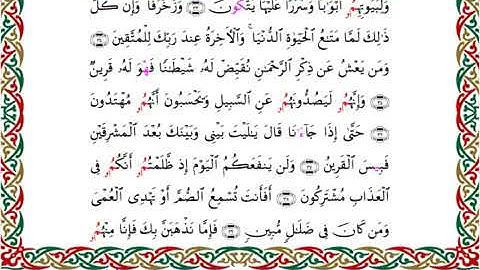 وَلِبُيُوتِهِمُۥ أَبْوَٰبًا وَسُرُرًا عَلَيْهَا يَتَّكُونَ وَزُخْرُفًا وَإِن كُلُّ
ذَٰلِكَ لَمَا مَتَٰعُ ٱلْحَيَوٰةِ ٱلدُّنْيَا ۚ وَٱلْأَخِرَةُ عِندَ رَبِّكَ لِلْمُتَّقِينَ
وَمَن يَعْشُ عَن ذِكْرِ ٱلرَّحْمَٰنِ نُقَيِّضْ لَهُۥ شَيْطَٰنًا فَهْوَ لَهُۥ قَرِينٌ
وَإِنَّهُمُۥ لَيَصُدُّونَهُمُۥ عَنِ ٱلسَّبِيلِ وَيَحْسَبُونَ أَنَّهُمُۥ مُهْتَدُونَ
حَتَّىٰ إِذَا جَآءَنَا قَالَ يَٰلَيْتَ بَيْنِى وَبَيْنَكَ بُعْدَ ٱلْمَشْرِقَيْنِ
فَبِيسَ ٱلْقَرِينُ وَلَن يَنفَعَكُمُ ٱلْيَوْمَ إِذ ظَّلَمْتُمُۥ أَنَّكُمُۥ فِى
ٱلْعَذَابِ مُشْتَرِكُونَ أَفَأَنتَ تُسْمِعُ ٱلصُّمَّ أَوْ تَهْدِى ٱلْعُمْىَ
وَمَن كَانَ فِى ضَلَٰلٍ مُّبِينٍ فَإِمَّا نَذْهَبَنَّ بِكَ فَإِنَّا مِنْهُمُۥ